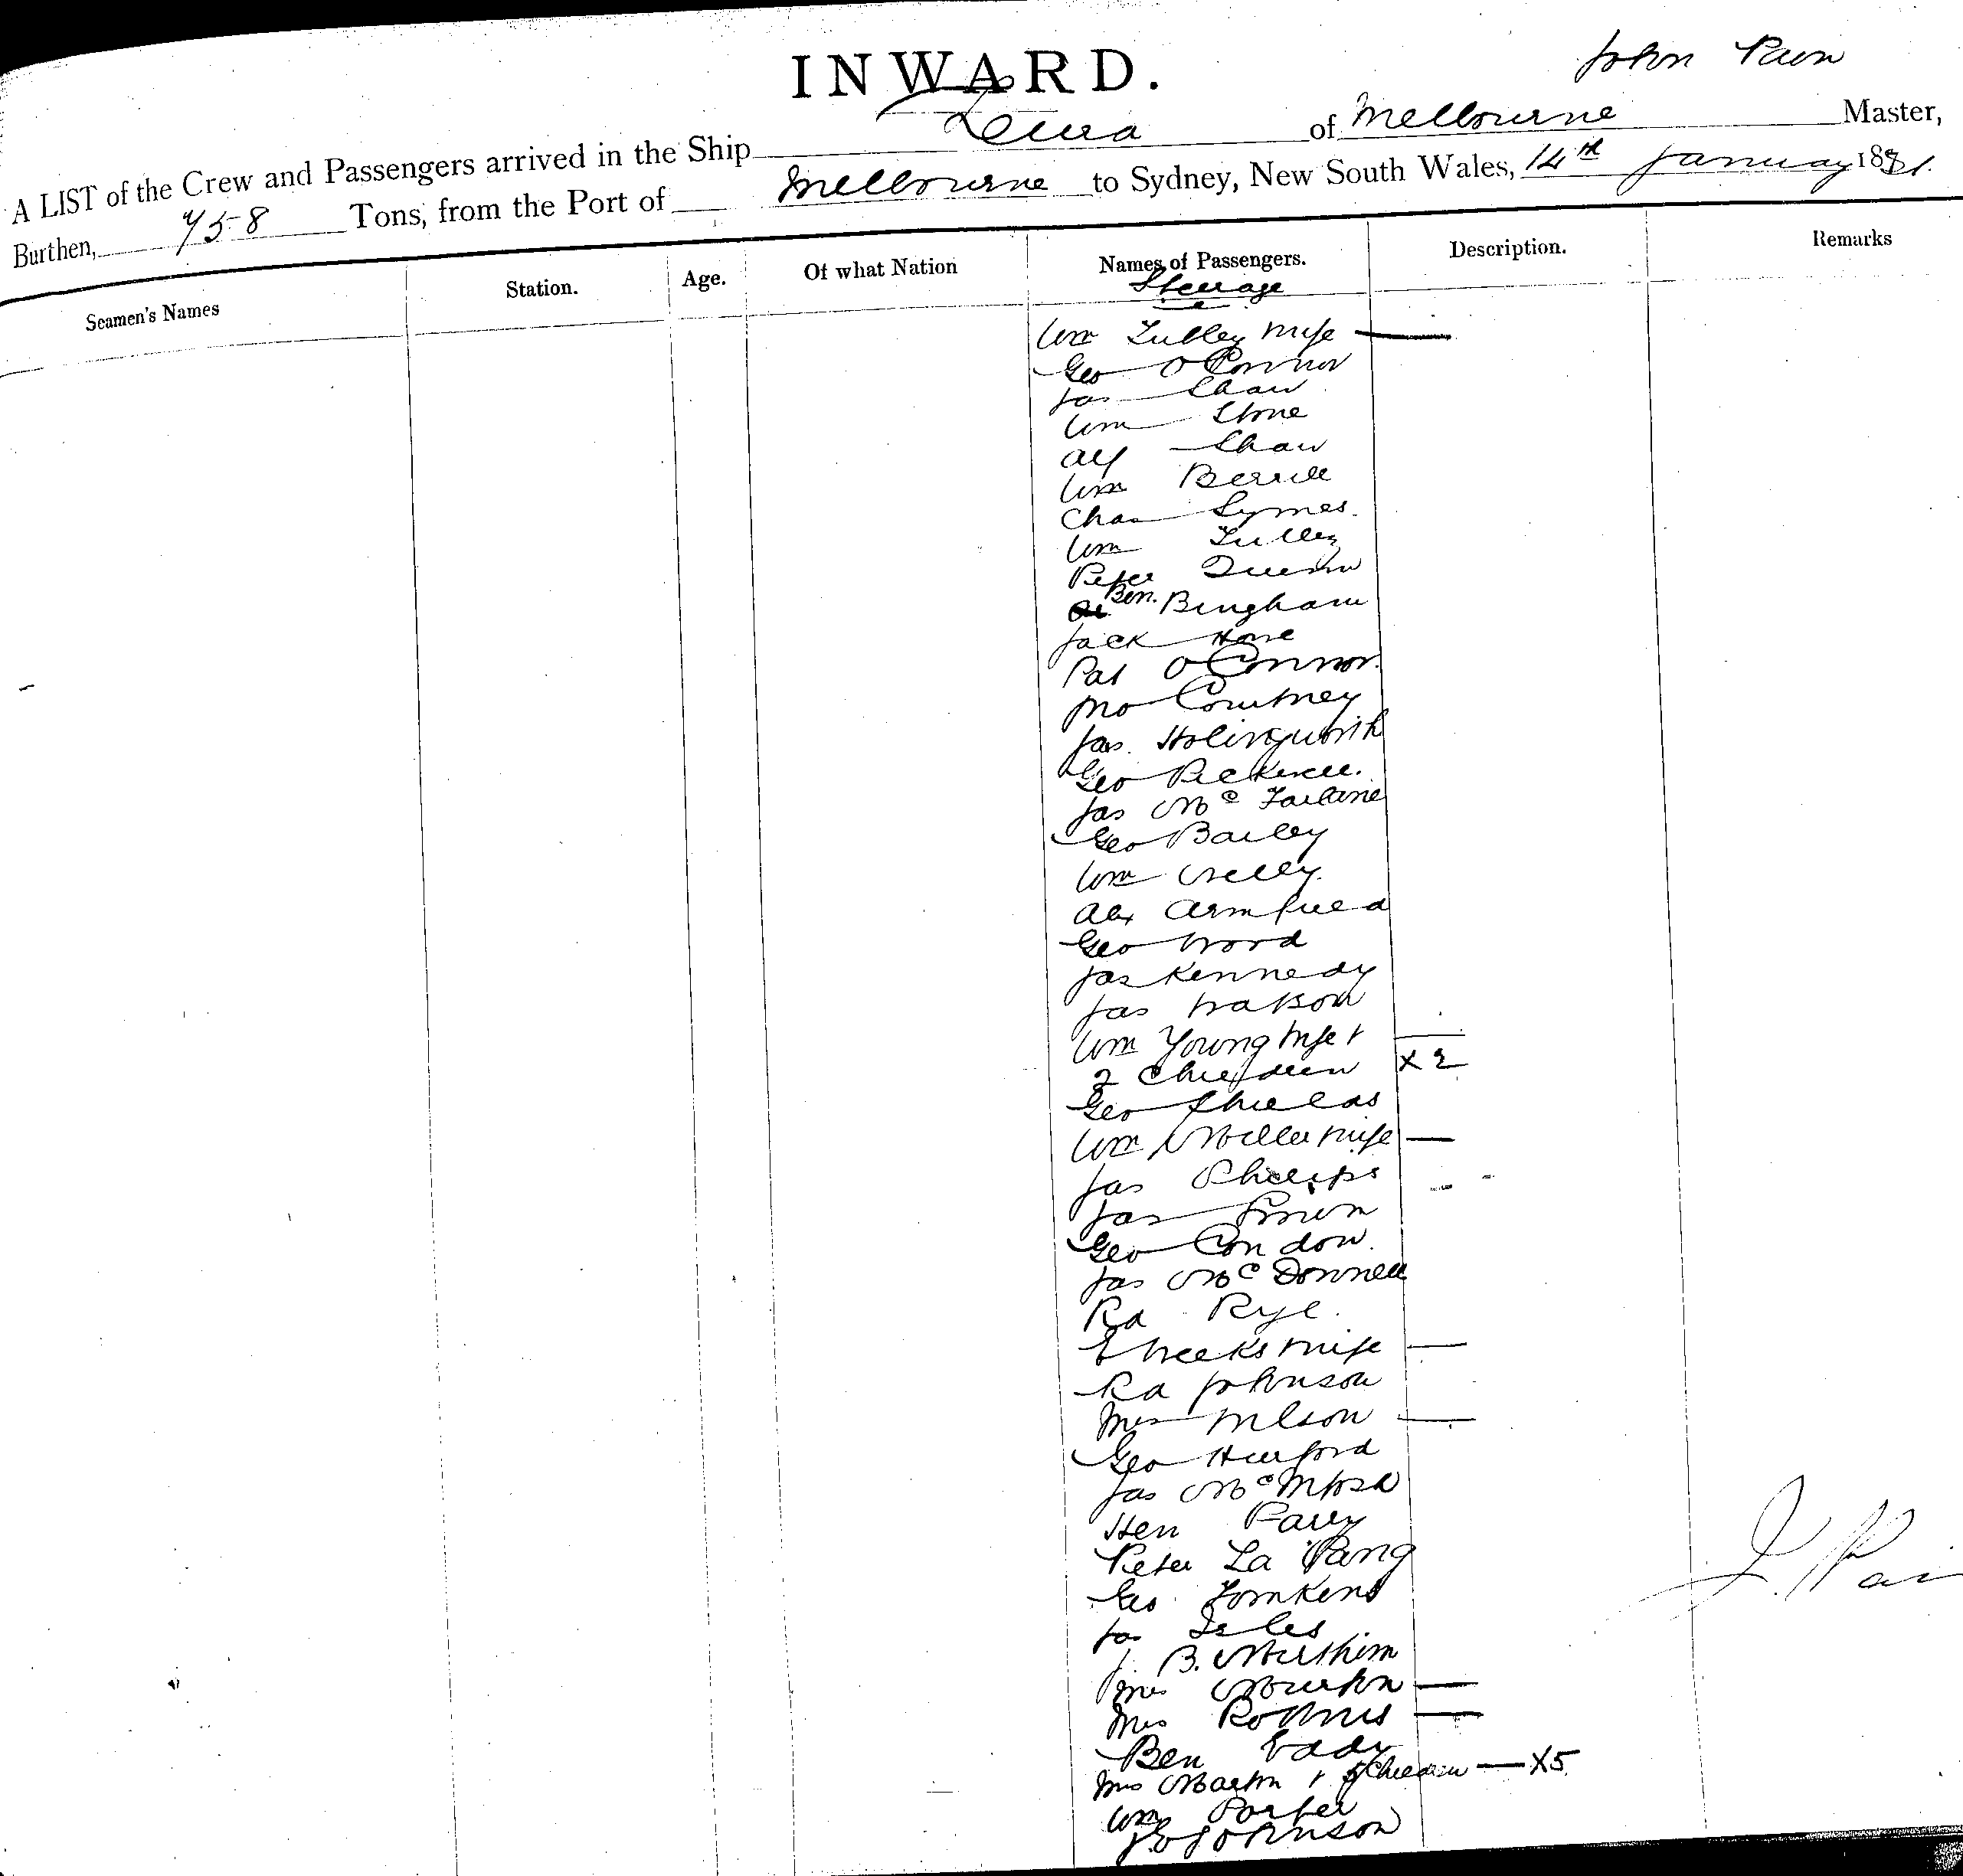 INWARD.
John Pain
A LIST of the Crew and Passengers arrived in the Ship of Melbourne Master,
Burthen, 758 Tons, from the Port of Melbourne to Sydney, New South Wales, 14th January 1881.
Seamen's Names Station. Age. Of what Nation Names of Passengers. Description. Remarks
Steerage
Wm Tulley wife —
Geo O'Connor
Jas Shaw
Wm Stone
Alf Shaw
Wm
Chas Symes.
Wm Tulley
Peter Quinn
Ben. Bingham
Jack Hone
Pat O'Connor.
Courtney
Jas. Holingworth
Geo
Jas Mc Farlane
Geo Bailey
Wm
Alex Armfield
Geo Wood
Jas Kennedy
Jas Watson
Wm Young wife +
2 Children X 2
Geo Shields
Wm Miller wife —
Jas Phillips
Jas Brown
Geo Condon.
Jas McDonnell
Rd Rye.
E Weeks wife —
Rd Johnson
Mrs Wilson —
Geo Hurford
Jas McIntosh
Hen Parry
Peter La Pang
Geo Tomkens
Jas Isles
J. B.
Mrs —
Mrs —
Ben Eady
Mrs Martin + 5 Children — X5
Wm Porter
Johnson